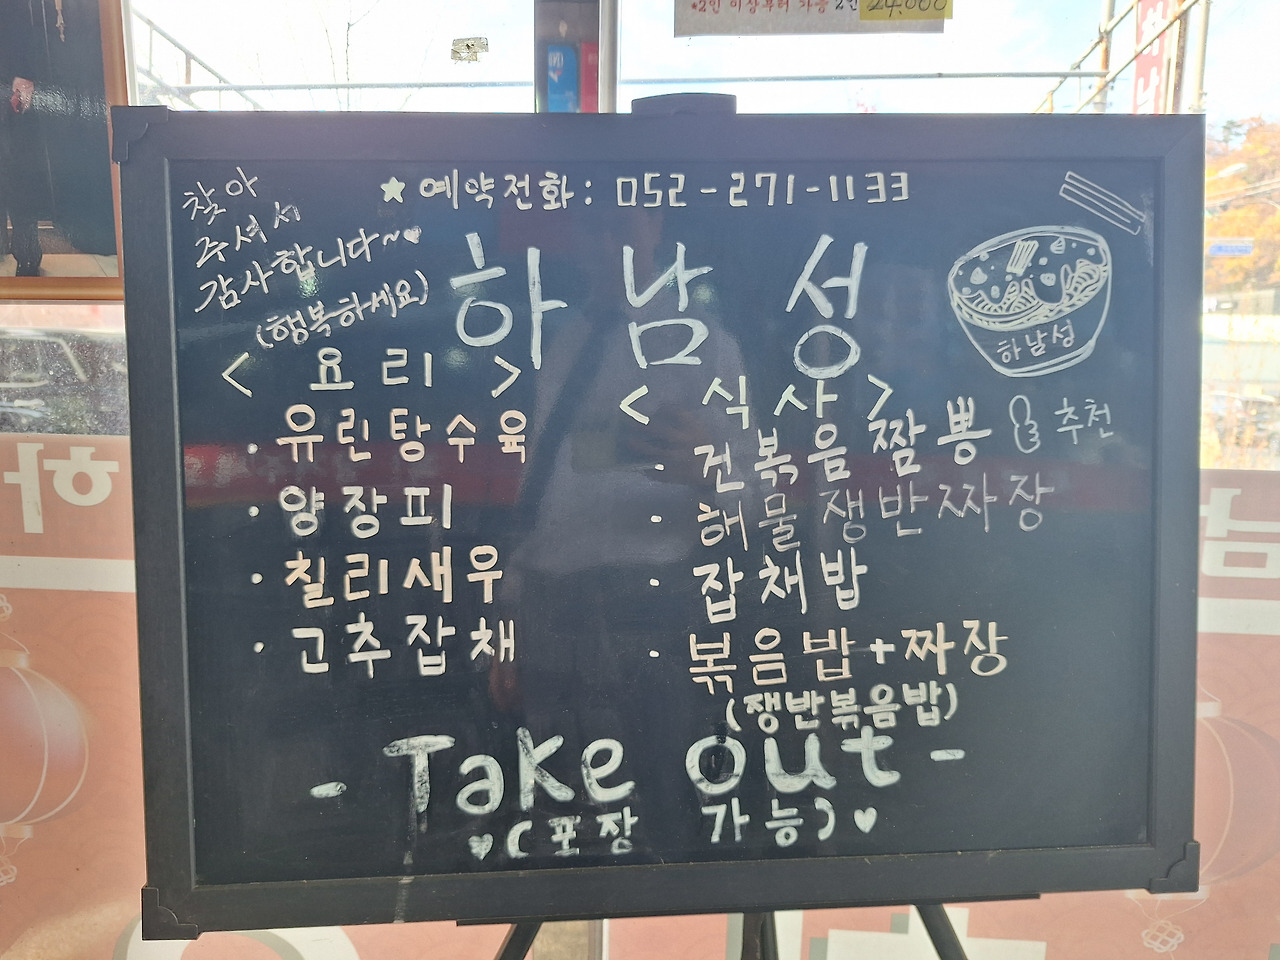 *2인 이상부터 가능 2인 24,000
찾아
주셔서
감사합니다~♥
(행복하세요)
★ 예약전화: 052-271-1133
하남성
하남성
< 요리 >
· 유린탕수육
· 양장피
· 칠리새우
· 고추잡채
< 식사 >
· 건볶음짬뽕 추천
· 해물쟁반짜장
· 잡채밥
· 볶음밥+짜장
(쟁반볶음밥)
- Take out -
♥(포장 가능)♥
하
남